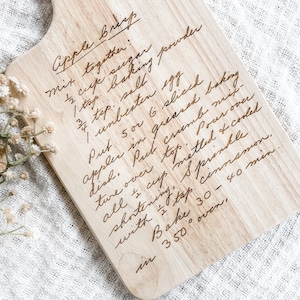 Apple Crisp
Mix together:
½ cup sugar
½ tsp. baking powder
¾ tsp. salt
1 unbeaten egg
Put 5 or 6 sliced
apples in greased baking
dish. Put crumb mix-
ture over top. Pour over
all ½ cup melted & cooled
shortening. Sprinkle
with ½ tsp. cinnamon.
Bake 30 - 40 min
in 350° oven.